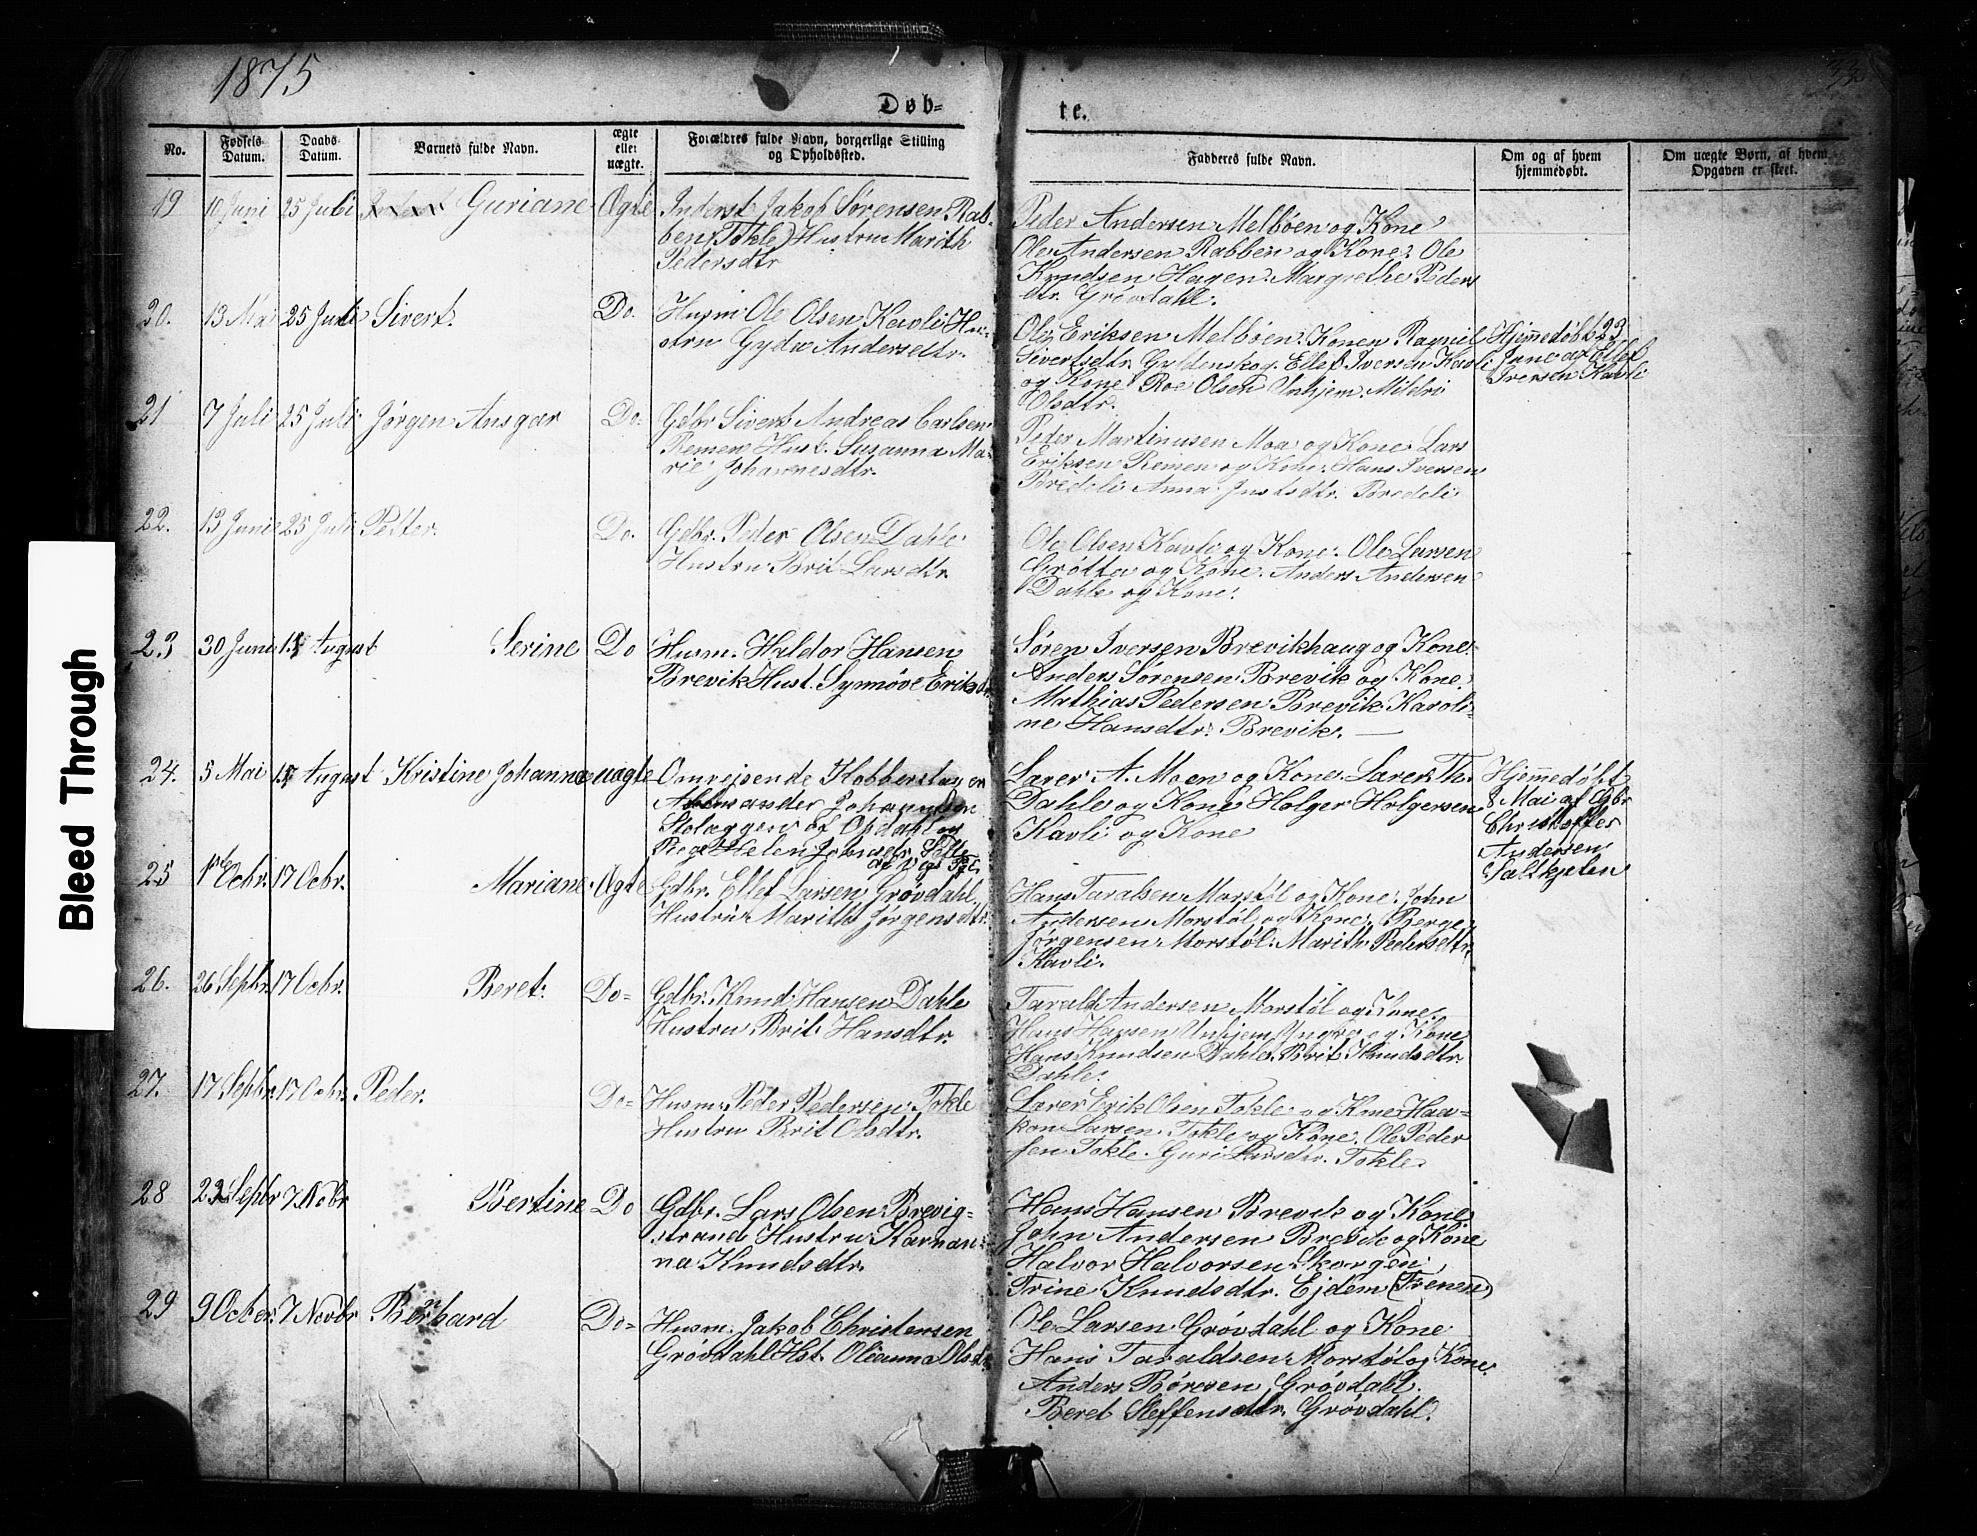 1875
Døb-
te.
No.
Fødsels-
Datum.
Daabs-
Datum.
Barnets fulde Navn.
ægte
eller
uægte.
Forældres fulde Navn, borgerlige Stilling
og Opholdssted.
Fadderes fulde Navn.
Om og af hvem
hjemmedøbt.
Om uægte Børn, af hvem
Opgaven er skeet.
19 10 Juni 25 Juli Guriane Ægte
Inderst Jakob Sørensen Rab-
ben (Tokle) Hustru Marith
Pedersdtr
Peder Andersen Melbøen og Kone
Ole Andersen Rabben og Kone. Ole
Knudsen Hagen. Margrethe Peders
dtr. Grøvdahl.
20. 13 Mai 25 Juli Sivert. Do.
Husm. Ole Olsen Kavli Hu-
stru Gyda Andersdtr.
Ole Eriksen Melbøen. Konen Ragnil
Sivertsdtr. Gyldenskog. Ellef Iversen Kavli
og Kone Roe Olsen Unhjem. Mildri
Olsdtr.
Hjemmedøbt 23
Juni af Ellef
Iversen Kavli
21 7 Juli 25 Juli Jørgen Ansgar Do.
Gdbr Sivert Andreas Carlsen
Remen Hust. Susanna Ma-
rie Johannesdtr.
Peder Martinusen Moa og Kone Lars
Eriksen Remen og Kone. Hans Iversen
Bredeli Anna Justsdtr. Bredeli
22. 13 Juni 25 Juli Petter. Do.
Gdbr. Peder Olsen Dahle
Hustru Brit Larsdtr
Ole Olsen Kavli og Kone. Ole Larsen
Grøtta og Kone. Anders Andersen
Dahle og Kone.
23 30 Juni 15 August Serine Do
Husm. Haldor Hansen
Brevik Hust. Synnøve Eriksdtr.
Søren Iversen Brevikhaug og Kone.
Anders Sørensen Brevik og Kone.
Mathias Pedersen Brevik Karoli-
ne Hansdtr. Brevik.
24. 5 Mai 15 August Kristine Johanna uægte
Omreisende Kobberslager
Johannesen
af Opdahl og
Pige Helen Johnsdtr.
Lærer A. Moen og Kone. Lærer Th.
Dahle og Kone Holger Holgersen
Kavli og Kone
Hjemmedøbt
8 Mai af Gbr
Christoffer
Andersen
Saltkjelen
25 1ste Ocbr. 17 Ocbr. Mariane Ægte
Gdbr. Ellef Larsen Grøvdahl
Hustru Marith Jørgensdtr.
Hans Taralsen Morstøl og Kone. John
Andersen Morstøl og Kone. Berge
Jørgensen Morstøl. Marith Pedersdtr.
Kavli.
26. 26 Septbr. 17 Ocbr. Beret. Do-
Gdbr. Knud Hansen Dahle
Hustru Brit Hansdtr.
Tarald Andersen Morstøl og Kone.
Hans Hansen Unhjem Yngre og Kone
Hans Knudsen Dahle. Brit Knudsdtr
Dahle.
27. 17 Septbr. 17 Ocbr. Peder. Do-
Husm. Peder Pedersen Tokle
Hustru Brit Olsdtr.
Lærer Erik Olsen Tokle og Kone Haa-
kon Larsen Tokle og Kone. Ole Peder
sen Tokle. Guri Larsdtr. Tokle.
28 22 Septbr 7 Novbr Bertine Do
Gdbr. Lars Olsen Brevig-
strand Hustru Karnan-
na Knudsdtr.
Hans Hansen Brevik og Kone
John Andersen Brevik og Kone
Halvor Halvorsen Skorgen
Trine Knudsdtr. Ejdem (Trenen)
29 9 Ocber. 7 Novbr Berhard Do-
Husm. Jakob Christensen
Grøvdahl Hst. Olianna Olsdtr.
Ole Larsen Grøvdahl og Kone
Hans Taraldsen Morstøl og Kone.
Anders Børesen Grøvdahl.
Beret Steffensdtr. Grøvdahl.
Bleed Through